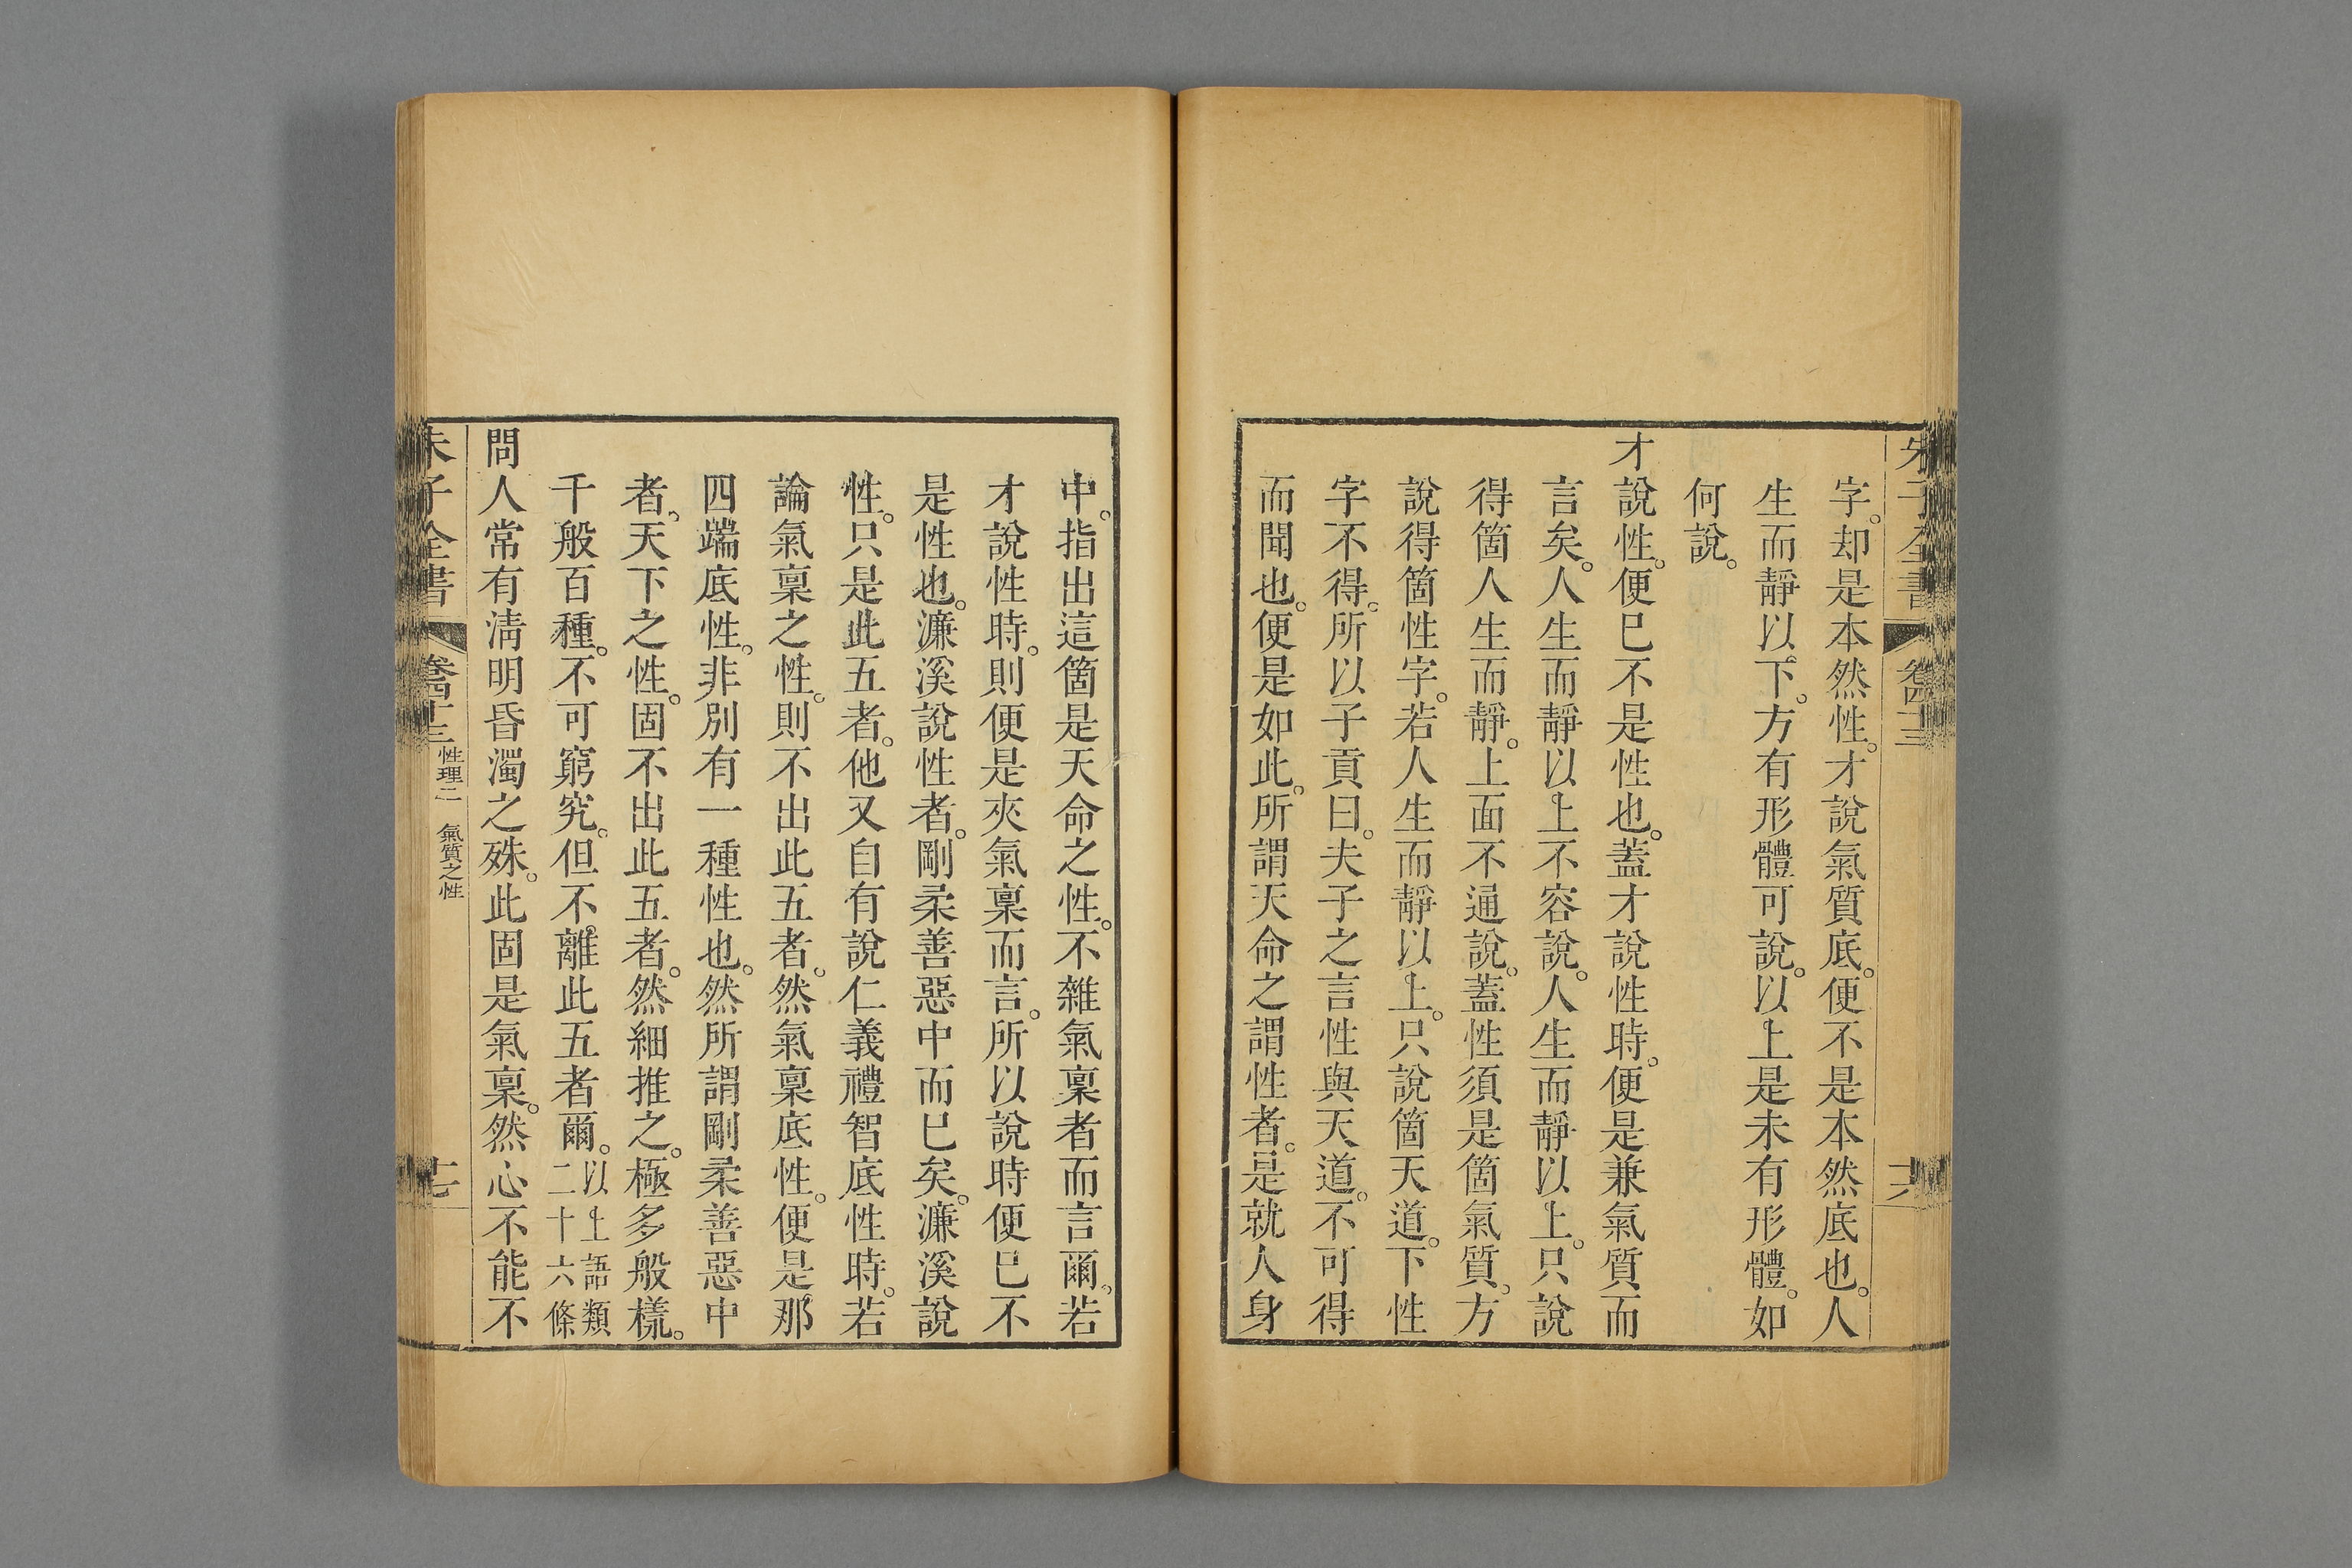 朱子全書 卷四十三 十六
字。却是本然性。才說氣質底。便不是本然底也。人
生而靜以下。方有形體可說。以上是未有形體。如
何說。
才說性。便已不是性也。蓋才說性時。便是兼氣質而
言矣。人生而靜以上不容說。人生而靜以上。只說
得箇人生而靜。上面不通說。蓋性須是箇氣質。方
說得箇性字。若人生而靜以上。只說箇天道。下性
字不得。所以子貢曰。夫子之言性與天道。不可得
而聞也。便是如此。所謂天命之謂性者。是就人身
中。指出這箇是天命之性。不雜氣稟者而言爾。若
才說性時。則便是夾氣稟而言。所以說時便已不
是性也。濂溪說性者。剛柔善惡中而已矣。濂溪說
性。只是此五者。他又自有說仁義禮智底性時。若
論氣稟之性。則不出此五者。然氣稟底性。便是那
四端底性。非別有一種性也。然所謂剛柔善惡中
者。天下之性。固不出此五者。然細推之。極多般樣。
千般百種。不可窮究。但不離此五者爾。以上語類二十六條
問人常有清明昏濁之殊。此固是氣稟。然心不能不
朱子全書 卷四十三 性理二 氣質之性 十七